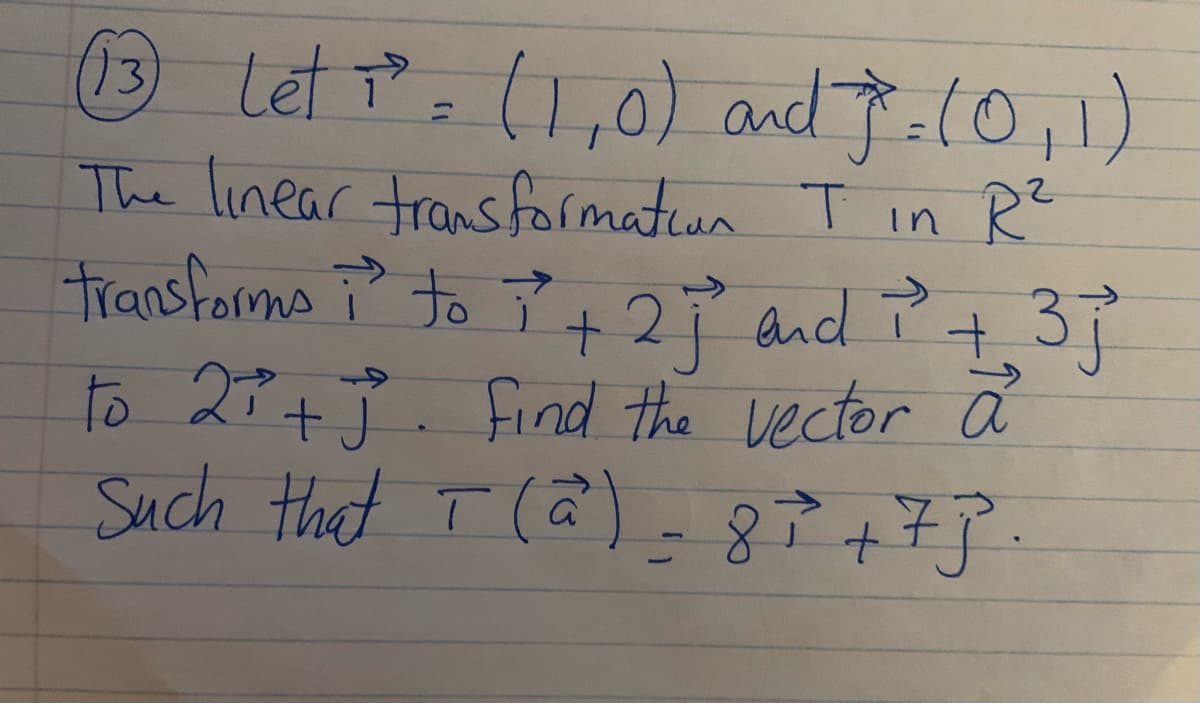 (13) Let i⃗ = (1,0) and j⃗ = (0,1)
The linear transformation T in R²
transforms i⃗ to i⃗ + 2j⃗ and i⃗ + 3j⃗
to 2i⃗ + j⃗. find the vector a⃗
Such that T(a⃗) = 8i⃗ + 7j⃗.